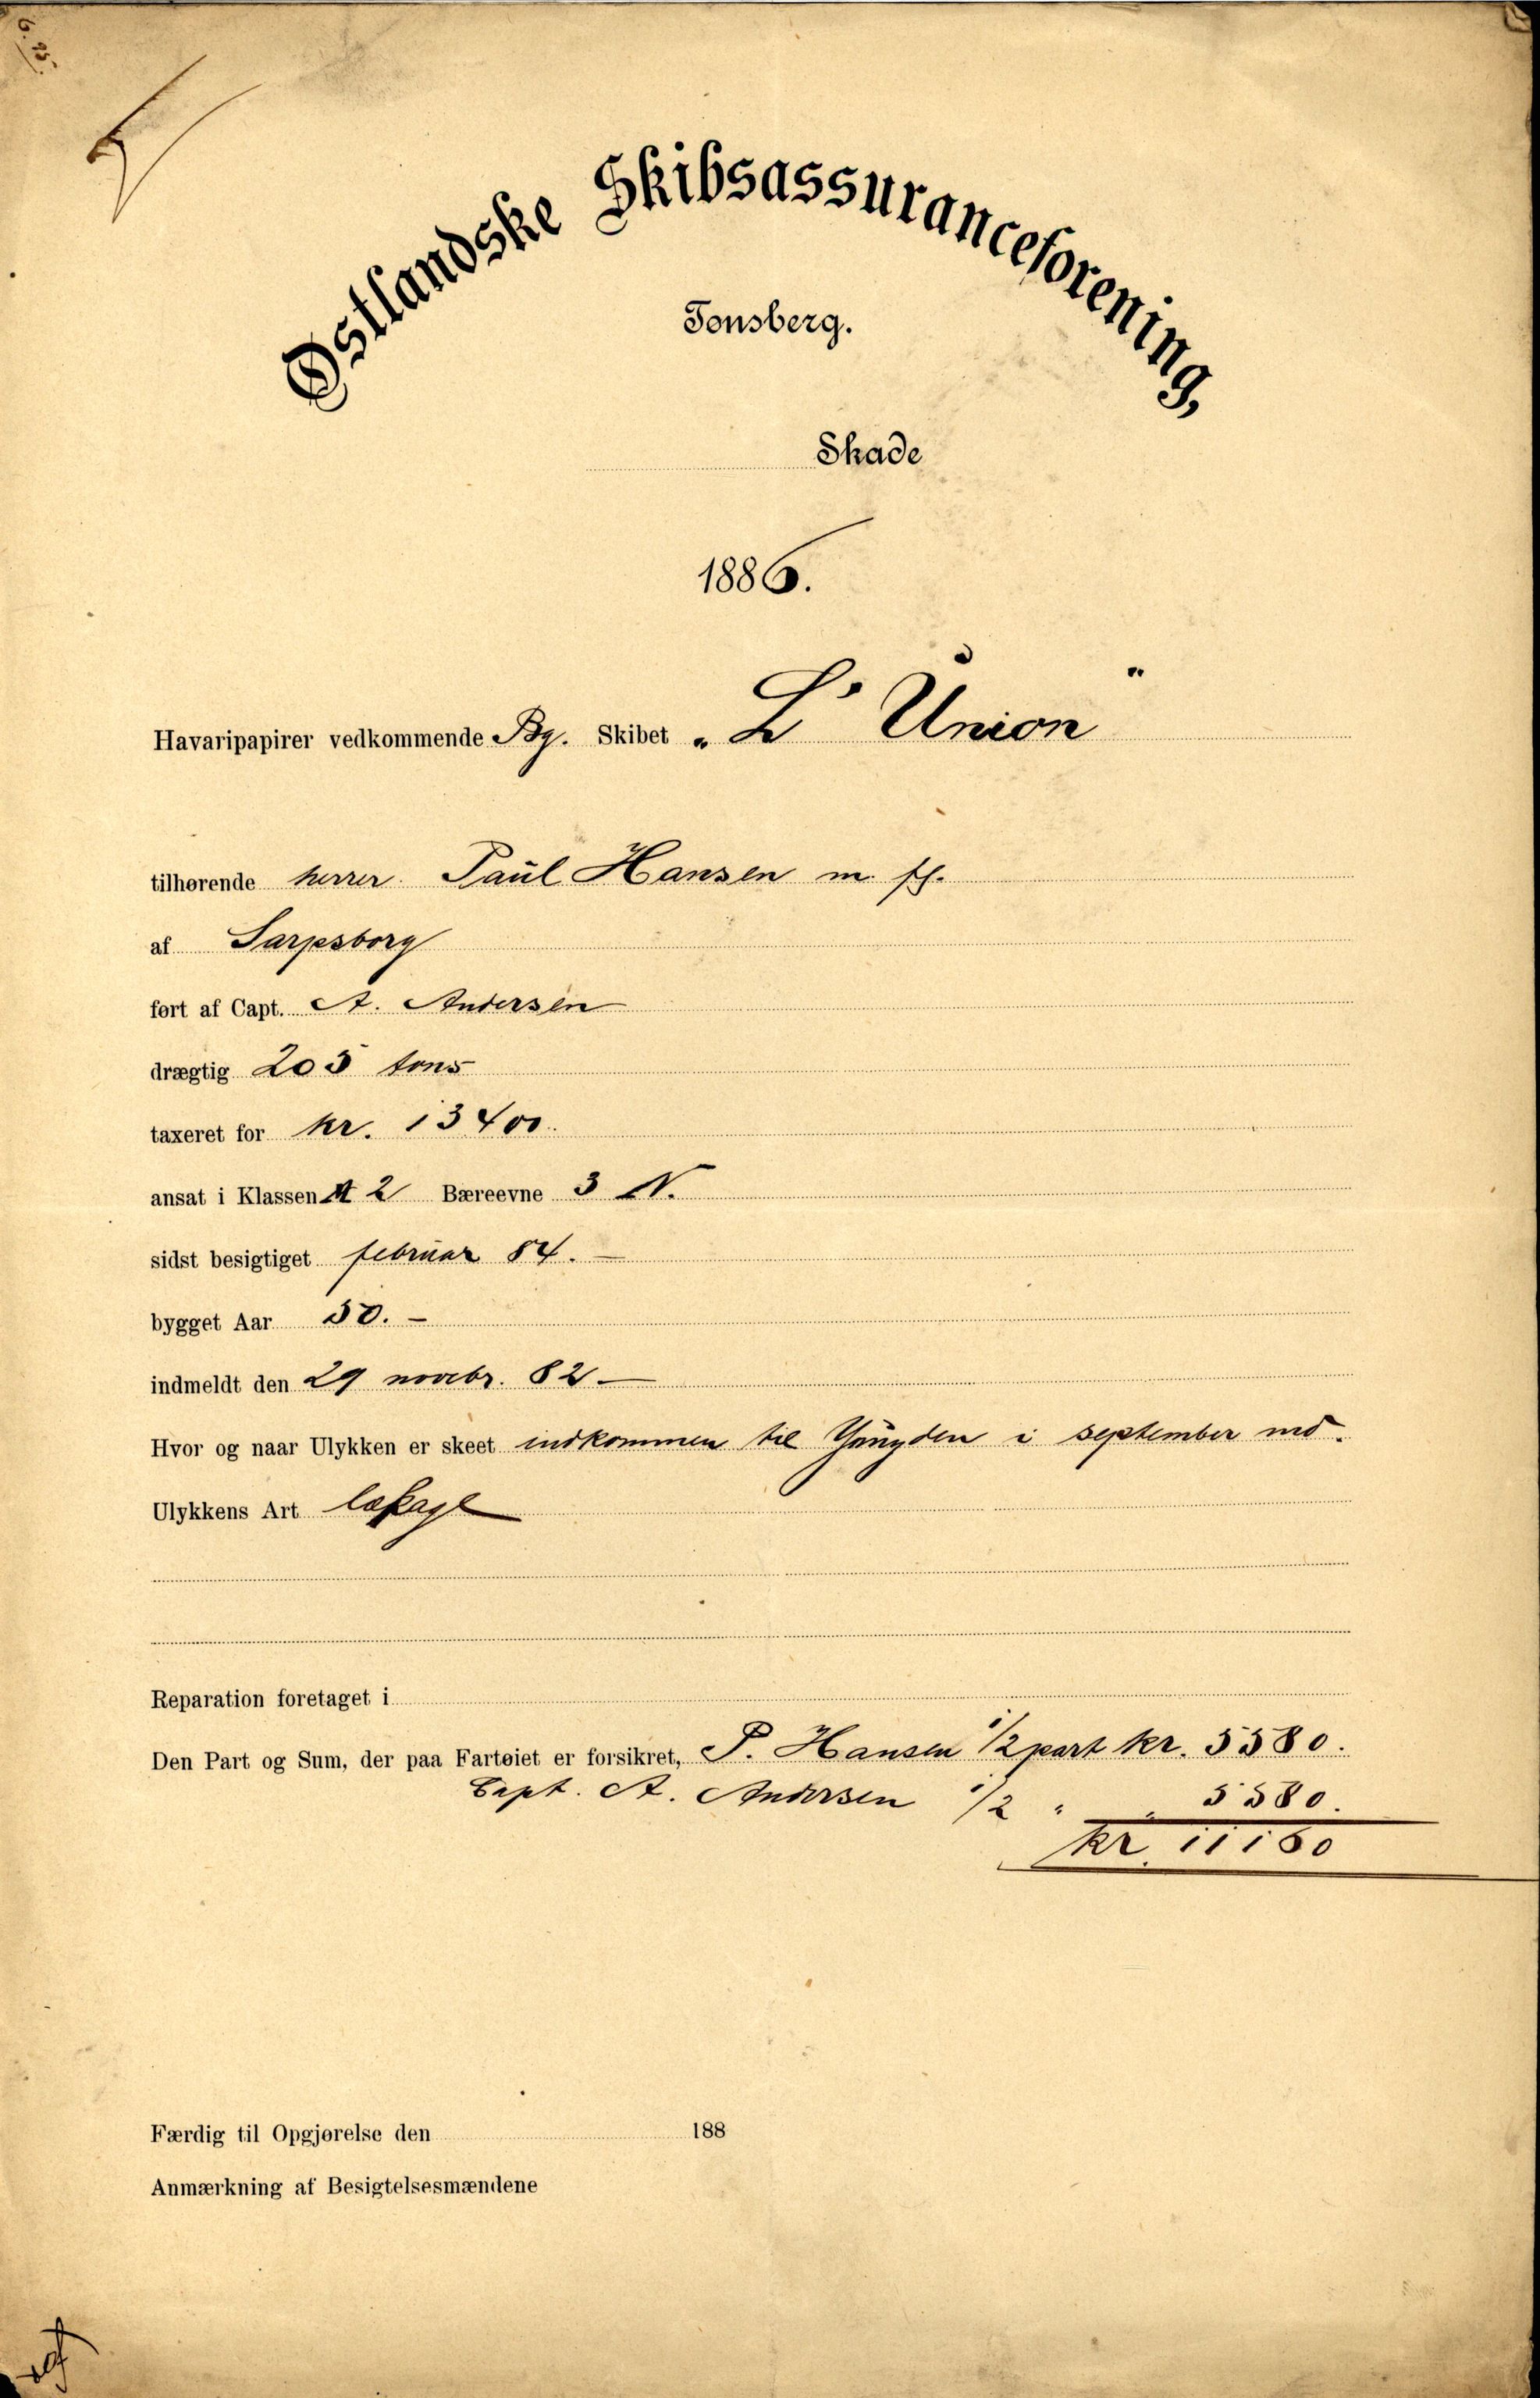 Østlandske Skibsassuranceforening,
Tønsberg.
Skade
1886.
Havaripapirer vedkommende Bg. Skibet „L'Union"
tilhørende herrer Paul Hansen m. fl.
af Sarpsborg
ført af Capt. A. Andersen
drægtig 205 tons
taxeret for kr. 13400.
ansat i Klassen A 2 Bæreevne 3 N.
sidst besigtiget februar 84. —
bygget Aar 50. —
indmeldt den 29 novebr. 82 —
Hvor og naar Ulykken er skeet indkommen til i september md.
Ulykkens Art lækage
Reparation foretaget i
Den Part og Sum, der paa Fartøiet er forsikret, P. Hansen 1/2 part kr. 5580.
Capt. A. Andersen 1/2 " " 5580.
kr. 11160
Færdig til Opgjørelse den 188
Anmærkning af Besigtelsesmændene